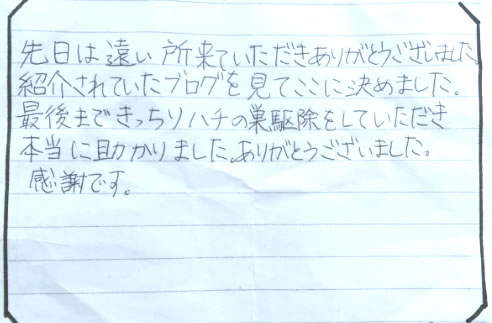 先日は遠い所来ていただきありがとうございました。
紹介されていたブログを見てここに決めました。
最後まできっちりハチの巣駆除をしていただき
本当に助かりました。ありがとうございました。
感謝です。